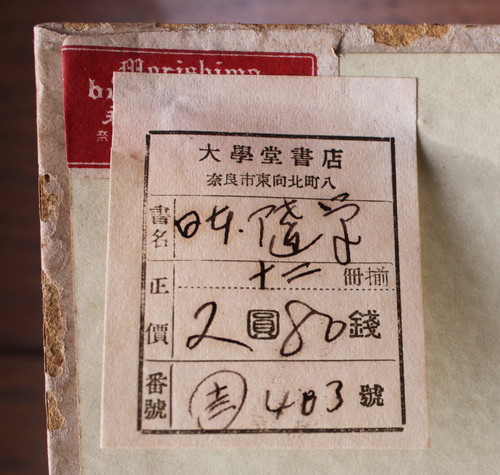 Morishima
大學堂書店
奈良市東向北町八
書名 日本.隨学
十二 冊揃
正價 2圓80錢
番號 403號